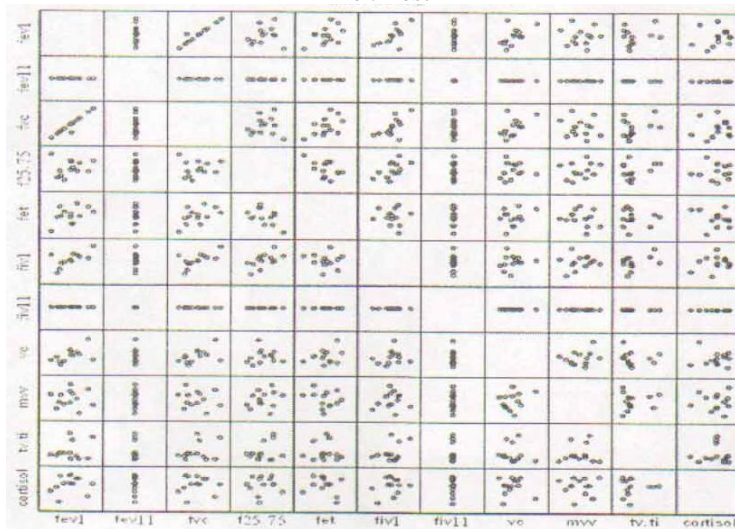 fev1
fev11
fvc
f25.75
fet
fiv1
fiv11
vc
mvv
tv.ti
cortisol
fev1 fev11 fvc f25.75 fet fiv1 fiv11 vc mvv tv.ti cortisol